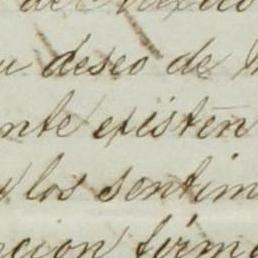 de México
deseo de
nte existen
los sentim
cion firme